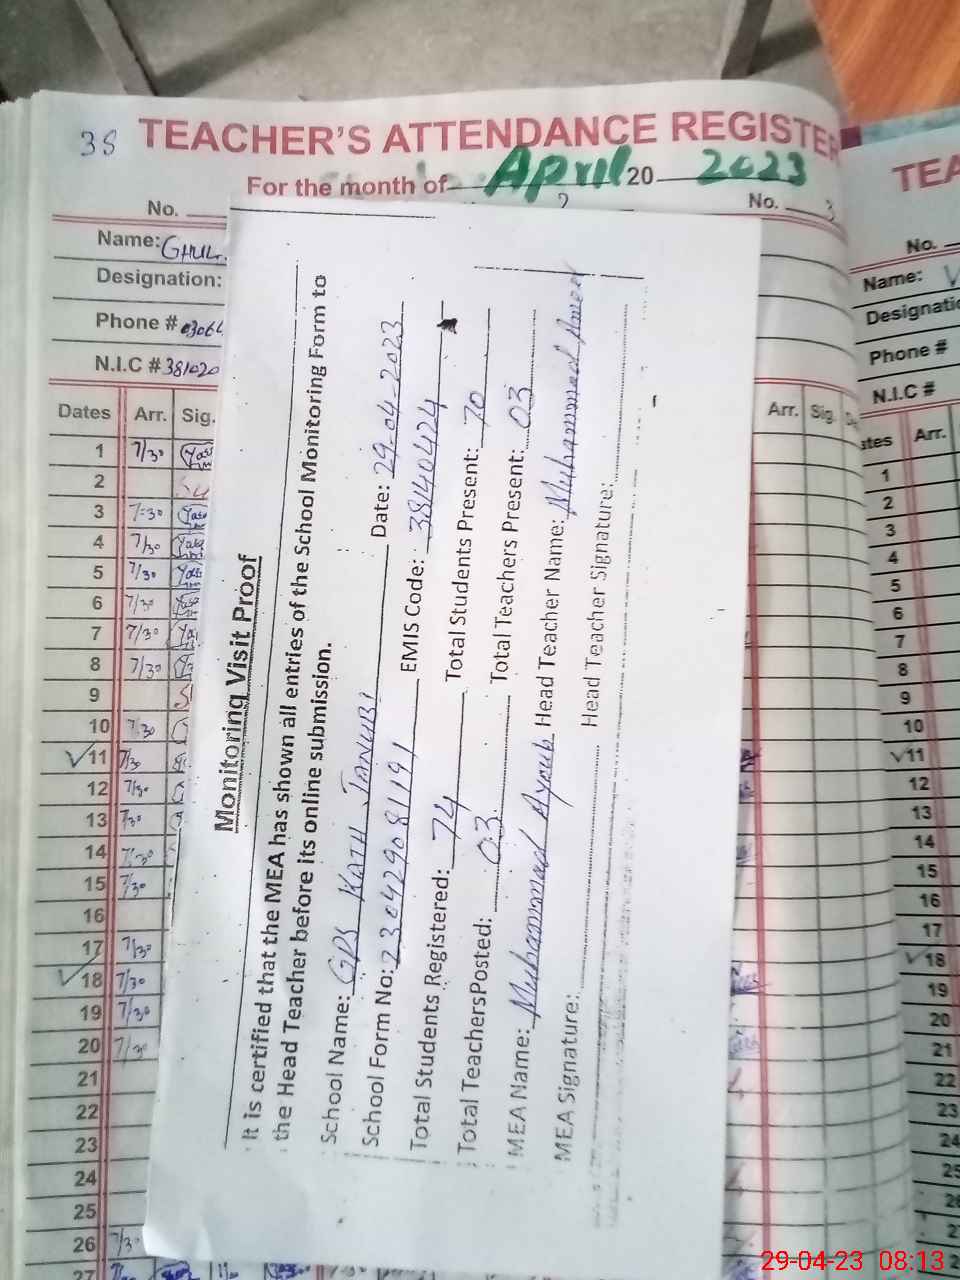 38 TEACHER'S ATTENDANCE REGISTER
For the month of April 20 2023
No. No. 3
Name: GHUL
Designation:
Phone # 03064
N.I.C # 381020
Dates Arr. Sig. Arr. Sig.
1 7/30
2
3 7=30
4 7/30
5 7/30
6 7/30
7 7/30
8 7/30
9
10 7/30
11 7/30
12 7/30
13 7/30
14 7/30
15 7/30
16
17 7/30
18 7/30
19 7/30
20 7/30
21
22
23
24
25
26 7/30
27
Monitoring Visit Proof
It is certified that the MEA has shown all entries of the School Monitoring Form to
the Head Teacher before its online submission.
School Name: GPS KATH JANUBI Date: 29-04-2023
School Form No: 23042908119 EMIS Code: 38140424
Total Students Registered: 74 Total Students Present: 70
Total TeachersPosted: 03 Total Teachers Present: 03
MEA Name: Muhammad Ayoub Head Teacher Name: Muhammad Ameer
MEA Signature: Head Teacher Signature:
TEA
No.
Name:
Designatio
Phone #
N.I.C #
ates Arr.
1
2
3
4
5
6
7
8
9
10
11
12
13
14
15
16
17
18
19
20
21
22
23
24
25
29-04-23 08:13